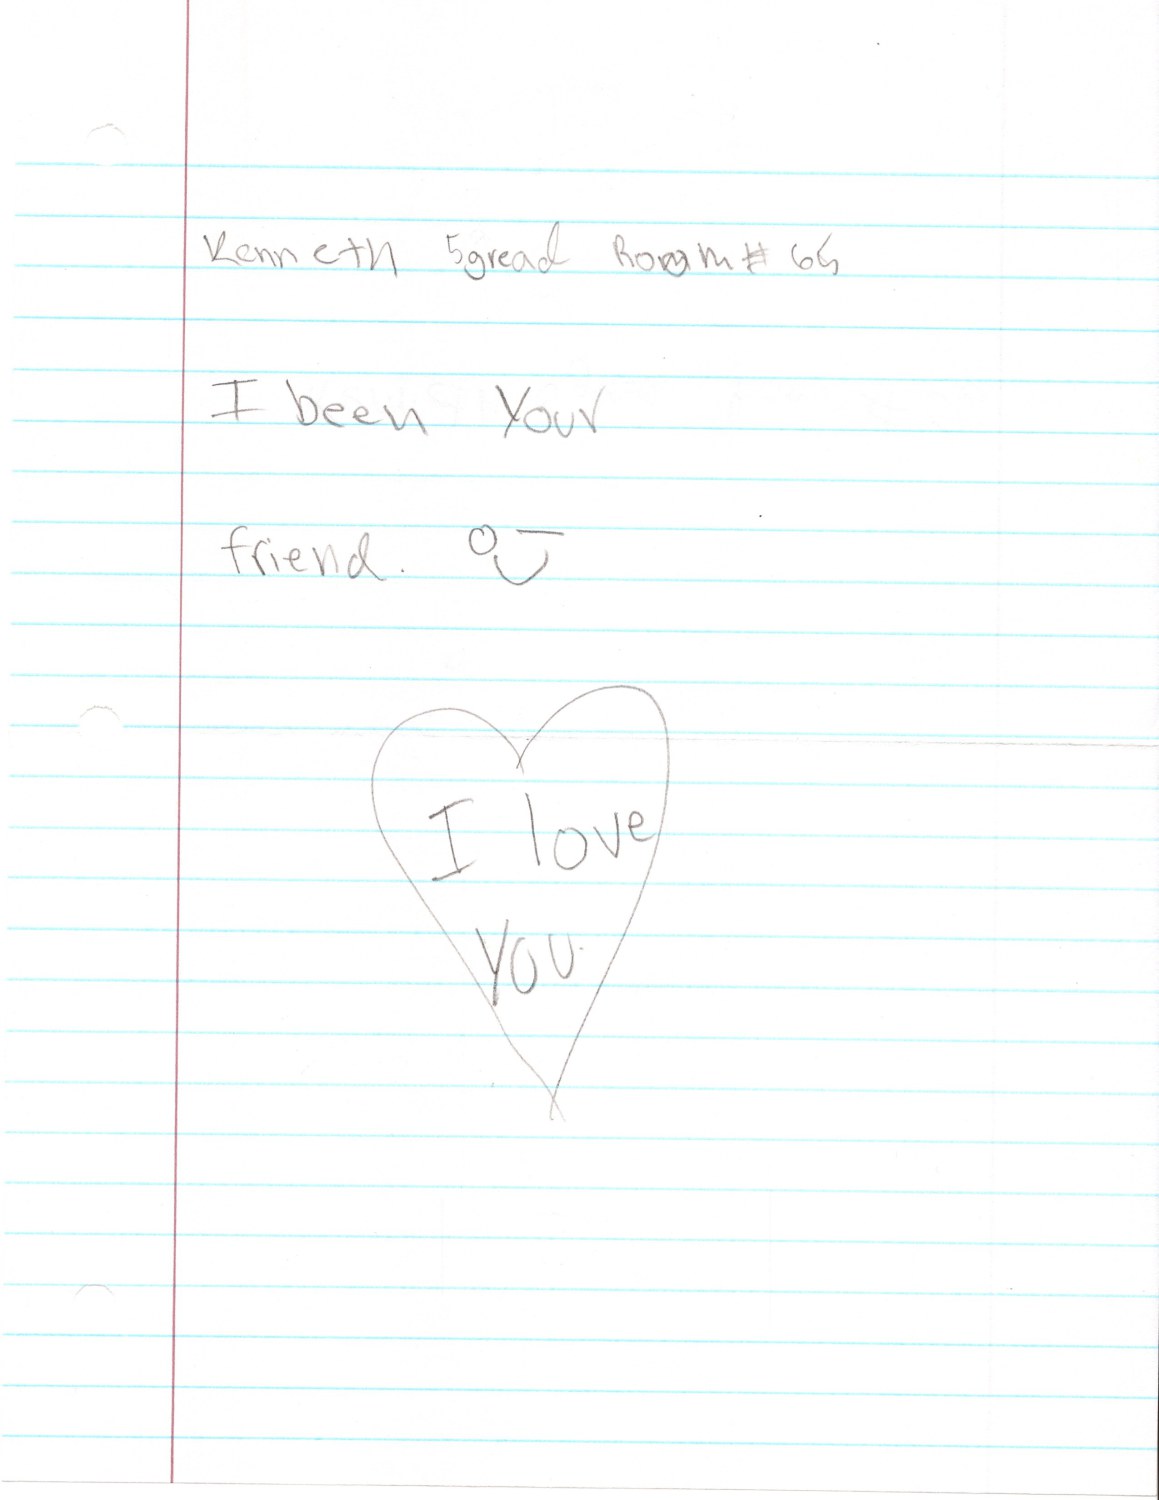 Kenneth 5gread Room # 65
I been your
friend.
I love
you.